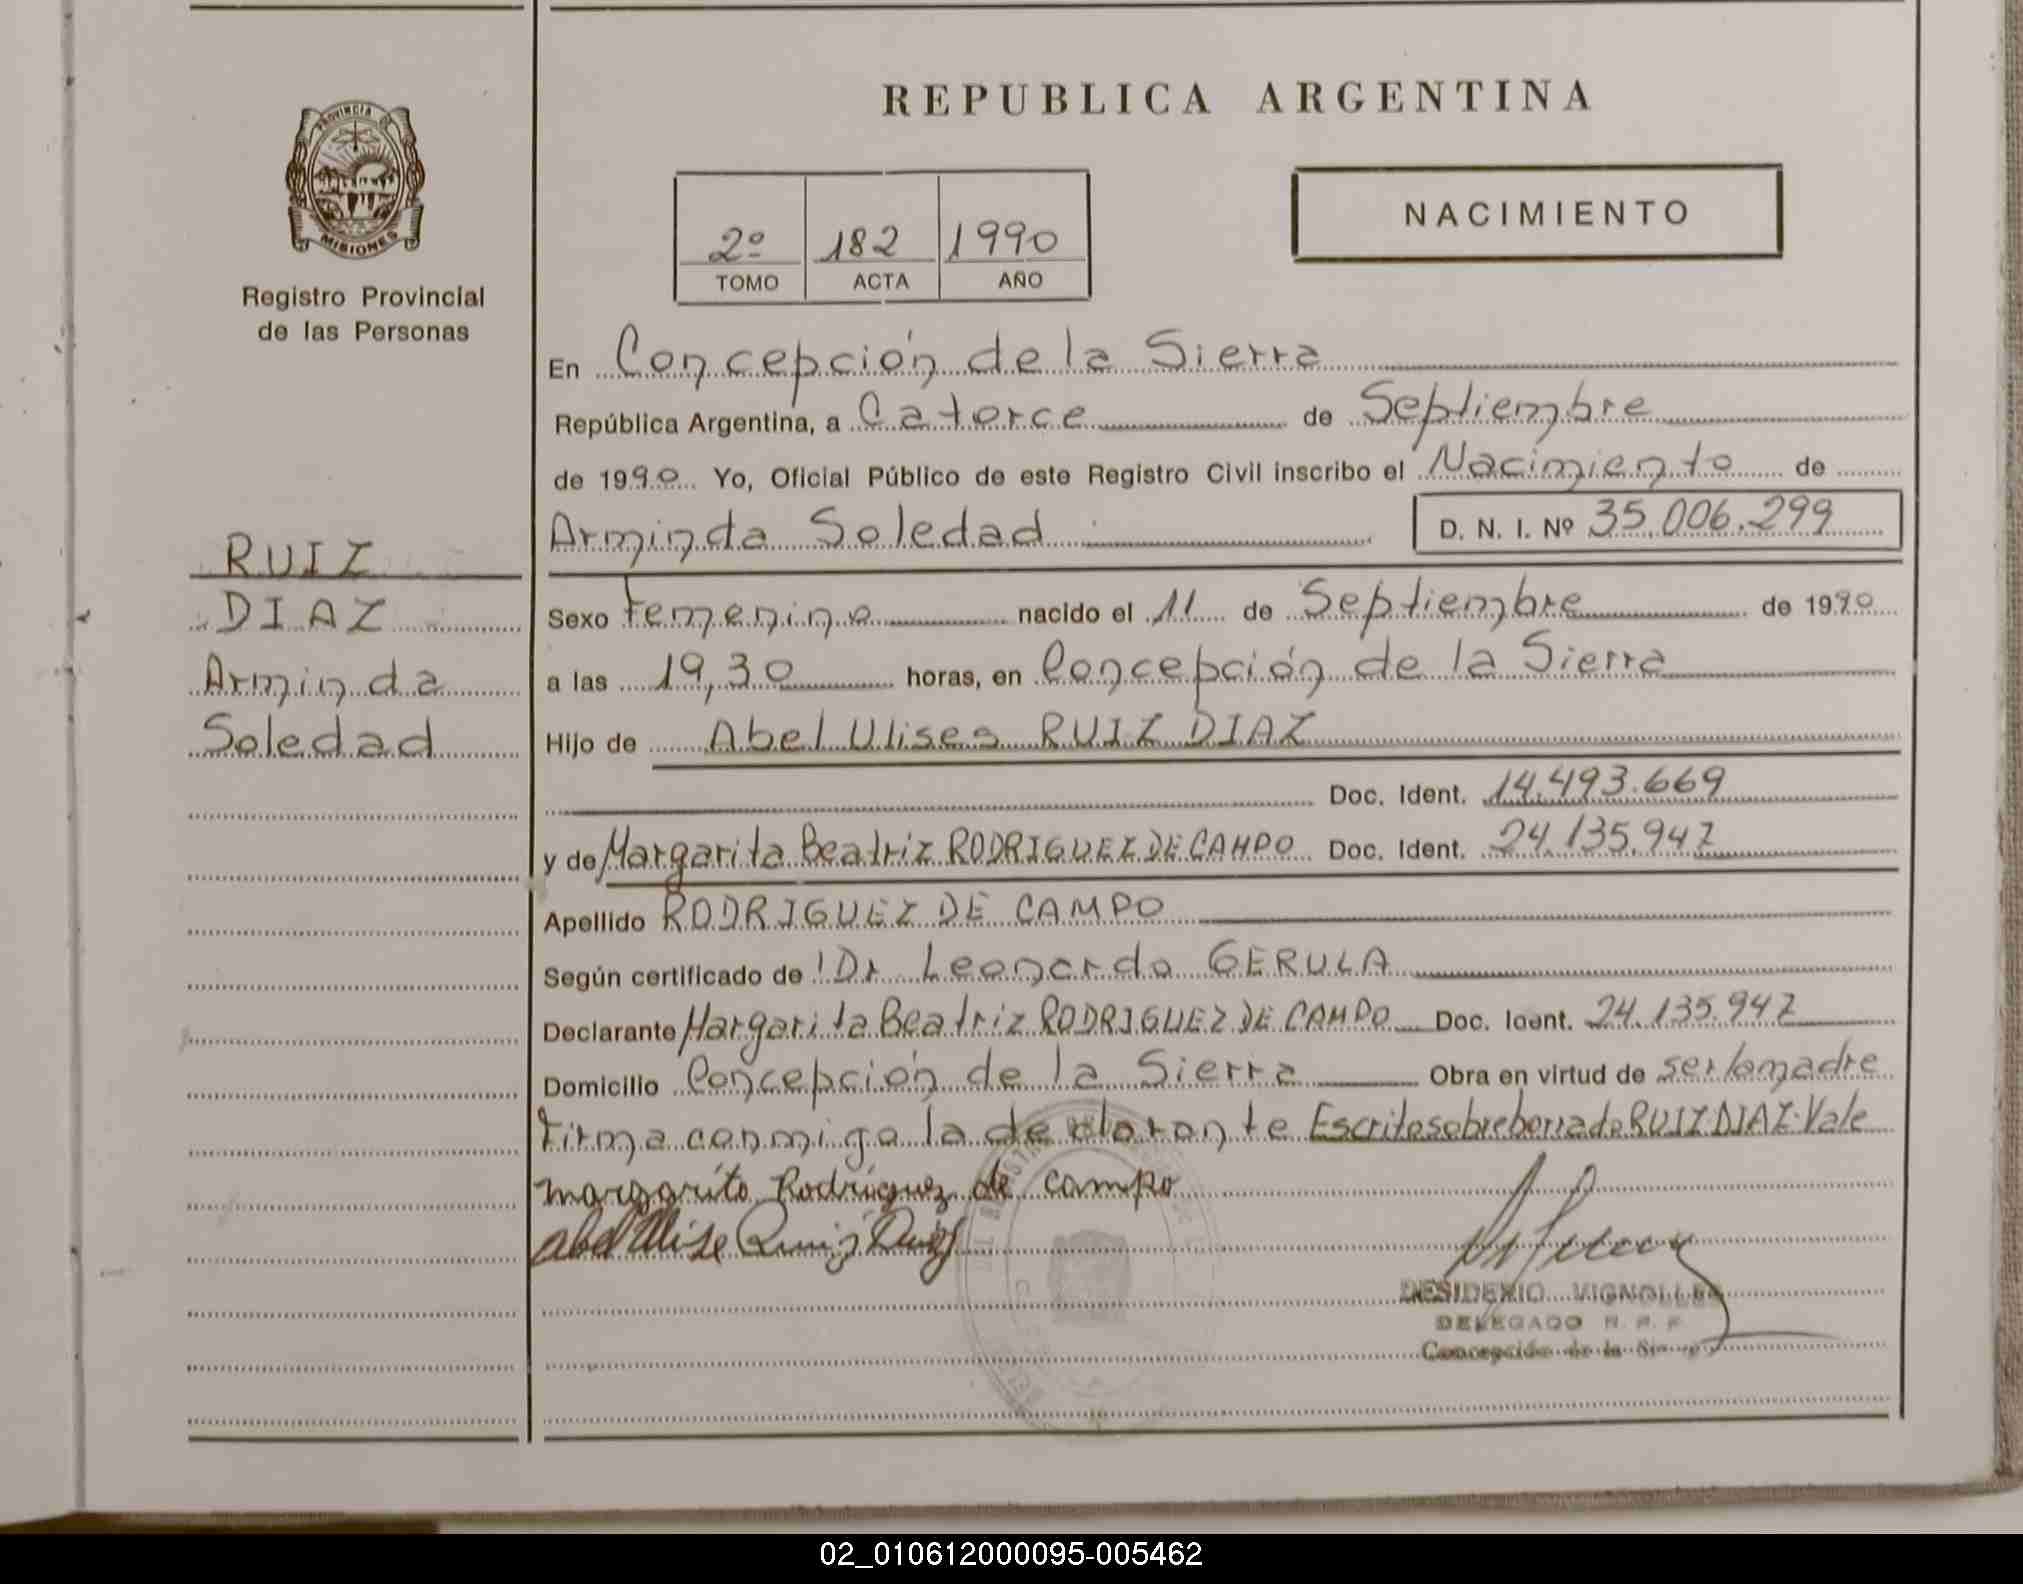 REPUBLICA ARGENTINA
PROVINCIA DE
MISIONES
Registro Provincial
de las Personas
2º 182 1990
TOMO ACTA AÑO
NACIMIENTO
En Concepción de la Sierra
República Argentina, a Catorce de Septiembre
de 1990 Yo, Oficial Público de este Registro Civil inscribo el Nacimiento de
Arminda Soledad D. N. I. Nº 35.006.299
RUIZ
DIAZ
Arminda
Soledad
Sexo Femenino nacido el 11 de Septiembre de 1990
a las 19,30 horas, en Concepción de la Sierra
Hijo de Abel Ulises RUIZ DIAZ
Doc. Ident. 14.493.669
y de Margarita Beatriz RODRIGUEZ DE CAMPO Doc. Ident. 24.135.947
Apellido RODRIGUEZ DE CAMPO
Según certificado de Dr Leonardo GERULA
Declarante Margarita Beatriz RODRIGUEZ DE CAMPO Doc. Ident. 24.135.947
Domicilio Concepción de la Sierra Obra en virtud de ser la madre
Firma conmigo la declarante Escrito sobre borrado RUIZ DIAZ. Vale
margarita Rodriguez de campo
Abel Ulise Ruiz Diaz
DESIDERIO VIGNOLLES
DELEGADO R. P. P.
Concepción de la Sierra
02_010612000095-005462